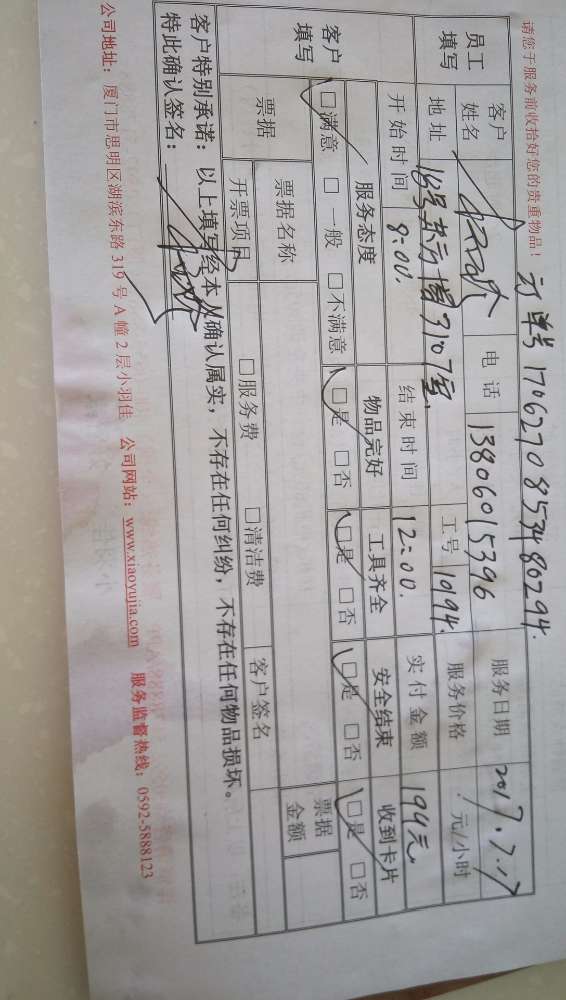 请您于服务前收拾好您的贵重物品！ 订单号 1706270853480294.
员工填写 客户姓名 电话 13806015396 服务日期 2017.7.17
地址 18号 3107室. 工号 1094. 服务价格 元/小时
开始时间 8:00. 结束时间 12:00. 实付金额 194元
客户填写 服务态度 物品完好 工具齐全 安全结束 收到卡片
□满意 □一般 □不满意 □是 □否 □是 □否 □是 □否 □是 □否
票据 票据名称 票据金额
开票项目 □服务费 □清洁费 客户签名
客户特别承诺：以上填写经本人确认属实，不存在任何纠纷，不存在任何物品损坏。
特此确认签名：
公司地址：厦门市思明区湖滨东路 319 号 A 幢 2 层小羽佳 公司网站：www.xiaoyujia.com 服务监督热线：0592-5888123